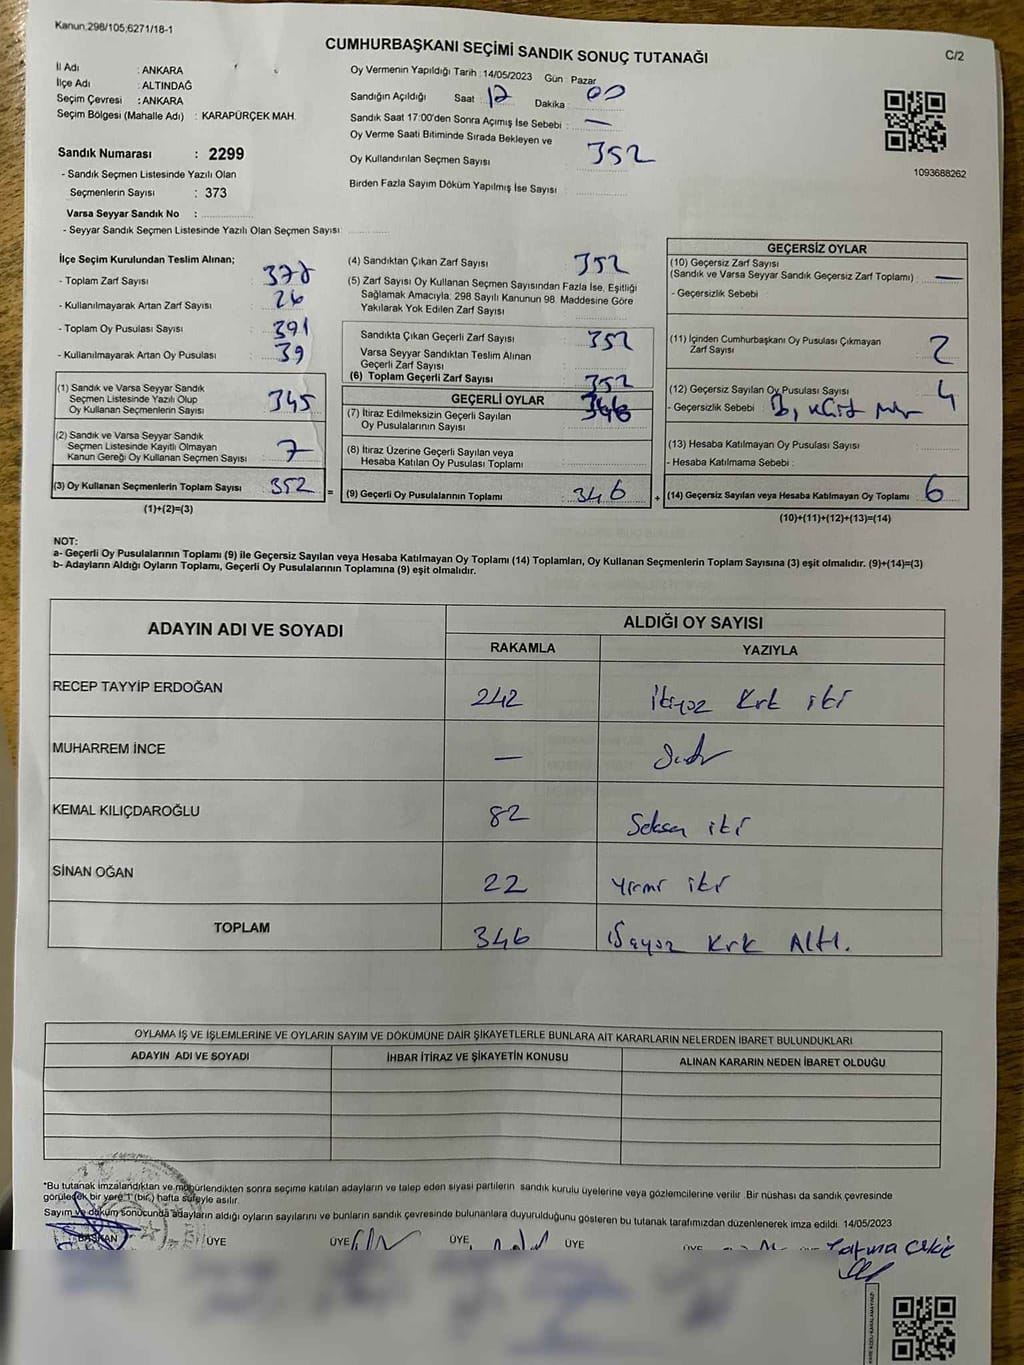 Kanun:298/105;6271/18-1
CUMHURBAŞKANI SEÇİMİ SANDIK SONUÇ TUTANAĞI
C/2
İl Adı : ANKARA
İlçe Adı : ALTINDAĞ
Seçim Çevresi : ANKARA
Seçim Bölgesi (Mahalle Adı) : KARAPÜRÇEK MAH.
Sandık Numarası : 2299
- Sandık Seçmen Listesinde Yazılı Olan
Seçmenlerin Sayısı : 373
Varsa Seyyar Sandık No :
- Seyyar Sandık Seçmen Listesinde Yazılı Olan Seçmen Sayısı:
Oy Vermenin Yapıldığı Tarih :14/05/2023 Gün : Pazar
Sandığın Açıldığı Saat : 17 Dakika : 00
Sandık Saat 17:00'den Sonra Açılmış İse Sebebi : —
Oy Verme Saati Bitiminde Sırada Bekleyen ve
Oy Kullandırılan Seçmen Sayısı : 352
Birden Fazla Sayım Döküm Yapılmış İse Sayısı :
1093688262
İlçe Seçim Kurulundan Teslim Alınan;
- Toplam Zarf Sayısı : 378
- Kullanılmayarak Artan Zarf Sayısı : 26
- Toplam Oy Pusulası Sayısı : 391
- Kullanılmayarak Artan Oy Pusulası : 39
(1) Sandık ve Varsa Seyyar Sandık
Seçmen Listesinde Yazılı Olup
Oy Kullanan Seçmenlerin Sayısı : 345
(2) Sandık ve Varsa Seyyar Sandık
Seçmen Listesinde Kayıtlı Olmayan
Kanun Gereği Oy Kullanan Seçmen Sayısı : 7
(3) Oy Kullanan Seçmenlerin Toplam Sayısı : 352 =
(1)+(2)=(3)
(4) Sandıktan Çıkan Zarf Sayısı : 352
(5) Zarf Sayısı Oy Kullanan Seçmen Sayısından Fazla İse, Eşitliği
Sağlamak Amacıyla; 298 Sayılı Kanunun 98. Maddesine Göre
Yakılarak Yok Edilen Zarf Sayısı :
Sandıkta Çıkan Geçerli Zarf Sayısı : 352
Varsa Seyyar Sandıktan Teslim Alınan
Geçerli Zarf Sayısı :
(6) Toplam Geçerli Zarf Sayısı : 352
GEÇERLİ OYLAR
(7) İtiraz Edilmeksizin Geçerli Sayılan
Oy Pusulalarının Sayısı : 346
(8) İtiraz Üzerine Geçerli Sayılan veya
Hesaba Katılan Oy Pusulası Toplamı :
(9) Geçerli Oy Pusulalarının Toplamı : 346 +
GEÇERSİZ OYLAR
(10) Geçersiz Zarf Sayısı
(Sandık ve Varsa Seyyar Sandık Geçersiz Zarf Toplamı) : —
- Geçersizlik Sebebi :
(11) İçinden Cumhurbaşkanı Oy Pusulası Çıkmayan
Zarf Sayısı : 2
(12) Geçersiz Sayılan Oy Pusulası Sayısı : 4
- Geçersizlik Sebebi :
(13) Hesaba Katılmayan Oy Pusulası Sayısı :
- Hesaba Katılmama Sebebi :
(14) Geçersiz Sayılan veya Hesaba Katılmayan Oy Toplamı : 6
(10)+(11)+(12)+(13)=(14)
NOT:
a- Geçerli Oy Pusulalarının Toplamı (9) ile Geçersiz Sayılan veya Hesaba Katılmayan Oy Toplamı (14) Toplamları, Oy Kullanan Seçmenlerin Toplam Sayısına (3) eşit olmalıdır. (9)+(14)=(3)
b- Adayların Aldığı Oyların Toplamı, Geçerli Oy Pusulalarının Toplamına (9) eşit olmalıdır.
ADAYIN ADI VE SOYADI
ALDIĞI OY SAYISI
RAKAMLA YAZIYLA
RECEP TAYYİP ERDOĞAN 242 ikiyüz Kırk iki
MUHARREM İNCE —
KEMAL KILIÇDAROĞLU 82 Seksen iki
SİNAN OĞAN 22 yirmi iki
TOPLAM 346 Kırk Altı.
OYLAMA İŞ VE İŞLEMLERİNE VE OYLARIN SAYIM VE DÖKÜMÜNE DAİR ŞİKAYETLERLE BUNLARA AİT KARARLARIN NELERDEN İBARET BULUNDUKLARI
ADAYIN ADI VE SOYADI İHBAR İTİRAZ VE ŞİKAYETİN KONUSU ALINAN KARARIN NEDEN İBARET OLDUĞU
*Bu tutanak imzalandıktan ve mühürlendikten sonra seçime katılan adayların ve talep eden siyasi partilerin sandık kurulu üyelerine veya gözlemcilerine verilir .Bir nüshası da sandık çevresinde
görülecek bir yere 1 (bir.) hafta süreyle asılır.
Sayım ve döküm sonucunda adayların aldığı oyların sayılarını ve bunların sandık çevresinde bulunanlara duyurulduğunu gösteren bu tutanak tarafımızdan düzenlenerek imza edildi. 14/05/2023
BAŞKAN ÜYE ÜYE ÜYE ÜYE ÜYE